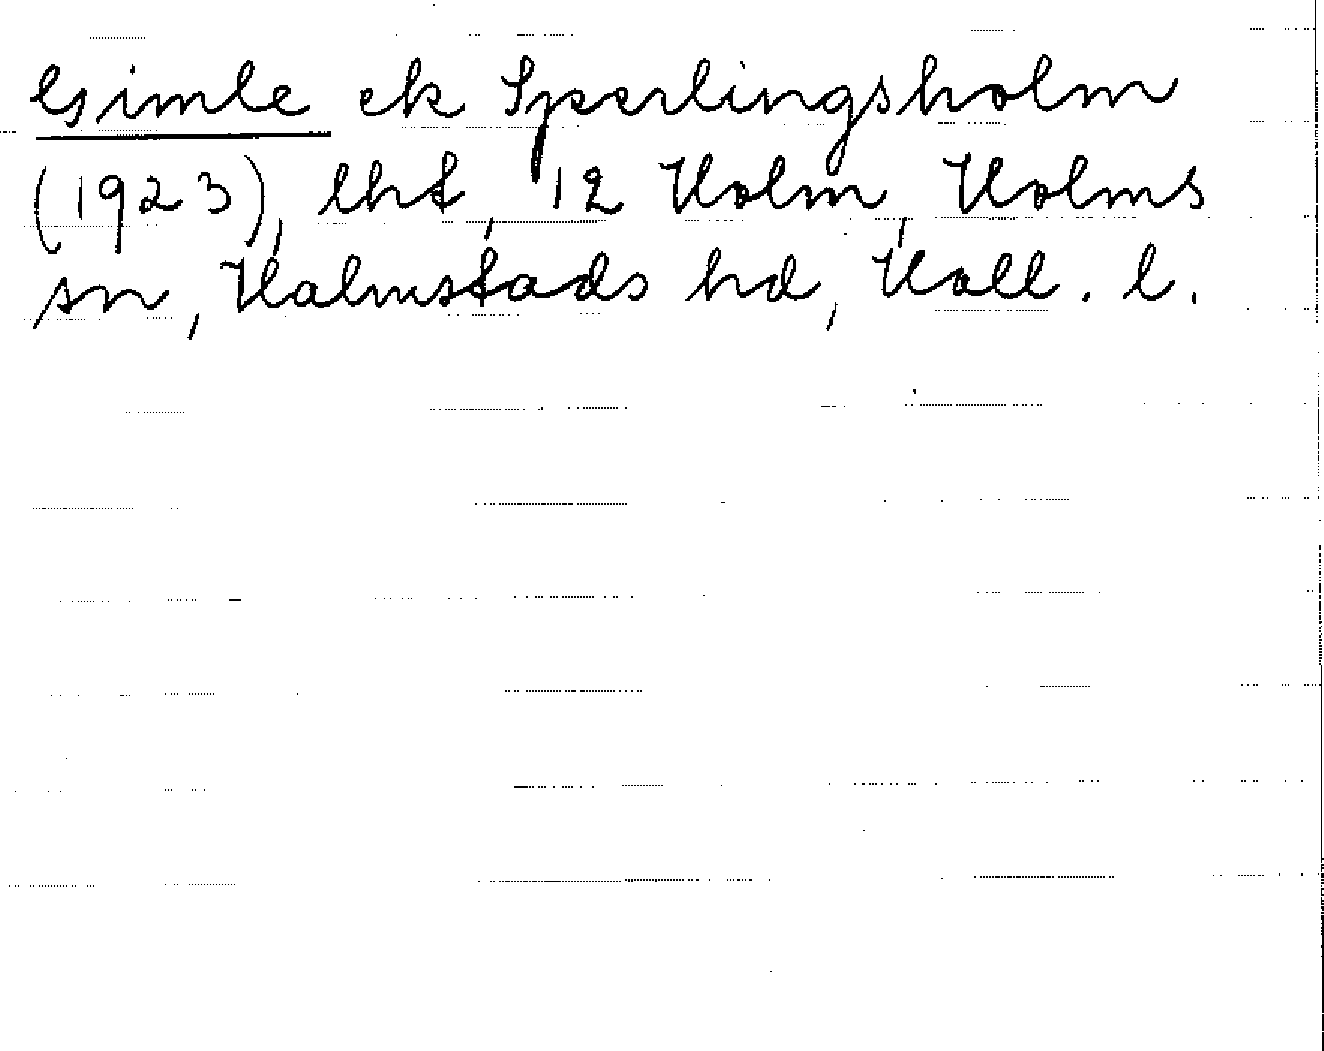 Gimle ek Sperlingsholm
(1923), lht, 12 Holm, Holms
sn, Halmstads hd, Hall. l.